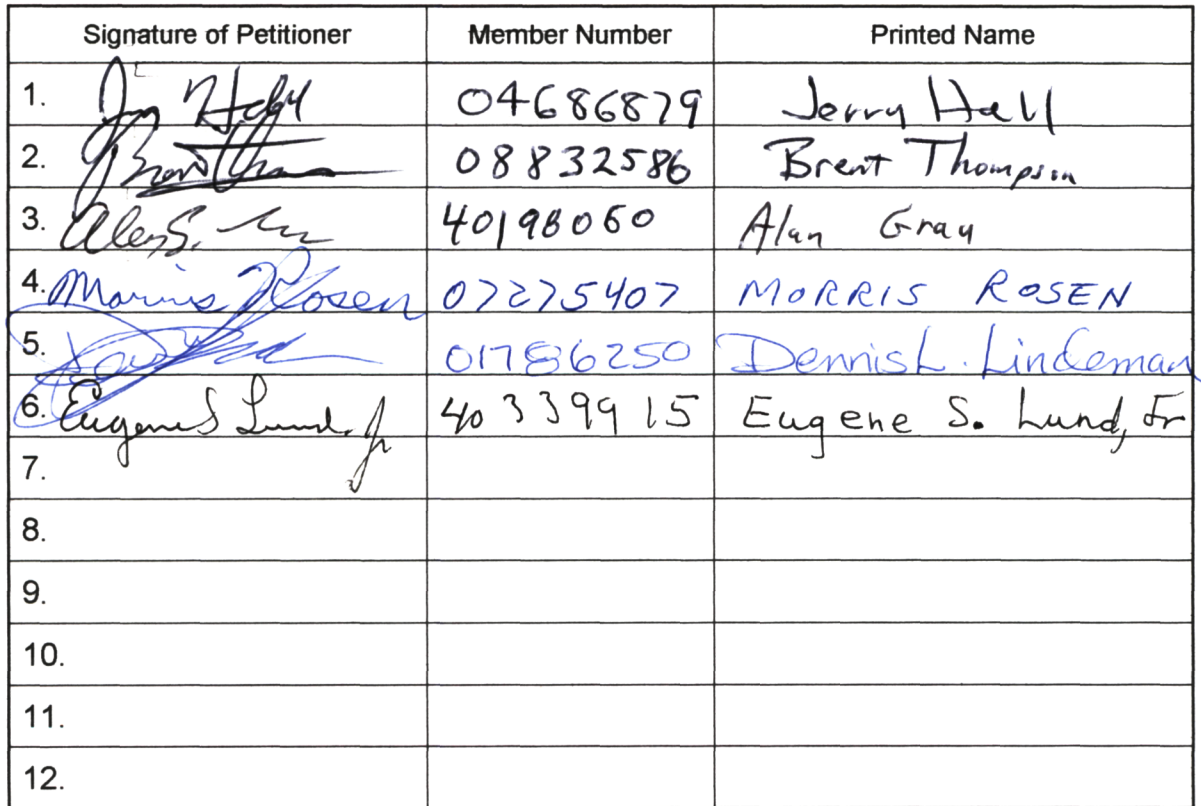 Signature of Petitioner Member Number Printed Name
1. 04686879 Jerry Hall
2. Brent 08832586 Brent Thompson
3. Alan S. 40198060 Alan Gray
4. Morris Rosen 07275407 MORRIS ROSEN
5. 01786250 Dennis L. Lindeman
6. Eugene S Lund Jr 40339915 Eugene S. Lund, Jr
7.
8.
9.
10.
11.
12.